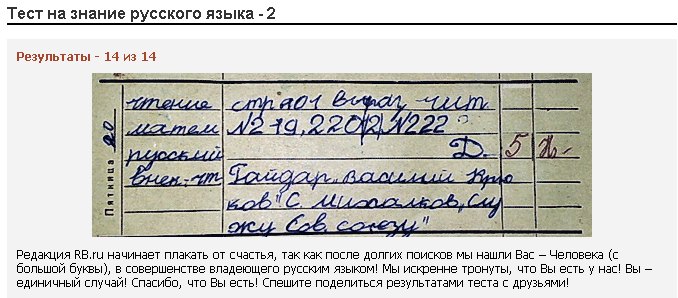 Тест на знание русского языка - 2
Результаты - 14 из 14
Пятница 20
чтение стр 101 выраз. чит.
матем №219, 220(2), №222
русский Д. 5
внек. чт Гайдар „Василий Крю
ков" С. Михалков „Слу
жу Сов. союзу"
Редакция RB.ru начинает плакать от счастья, так как после долгих поисков мы нашли Вас – Человека (с
большой буквы), в совершенстве владеющего русским языком! Мы искренне тронуты, что Вы есть у нас! Вы –
единичный случай! Спасибо, что Вы есть! Спешите поделиться результатами теста с друзьями!